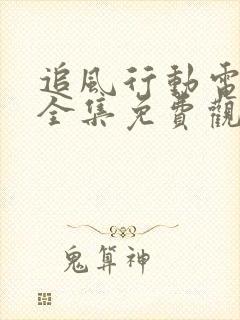 追風行動電
全集免費觀
鬼算神